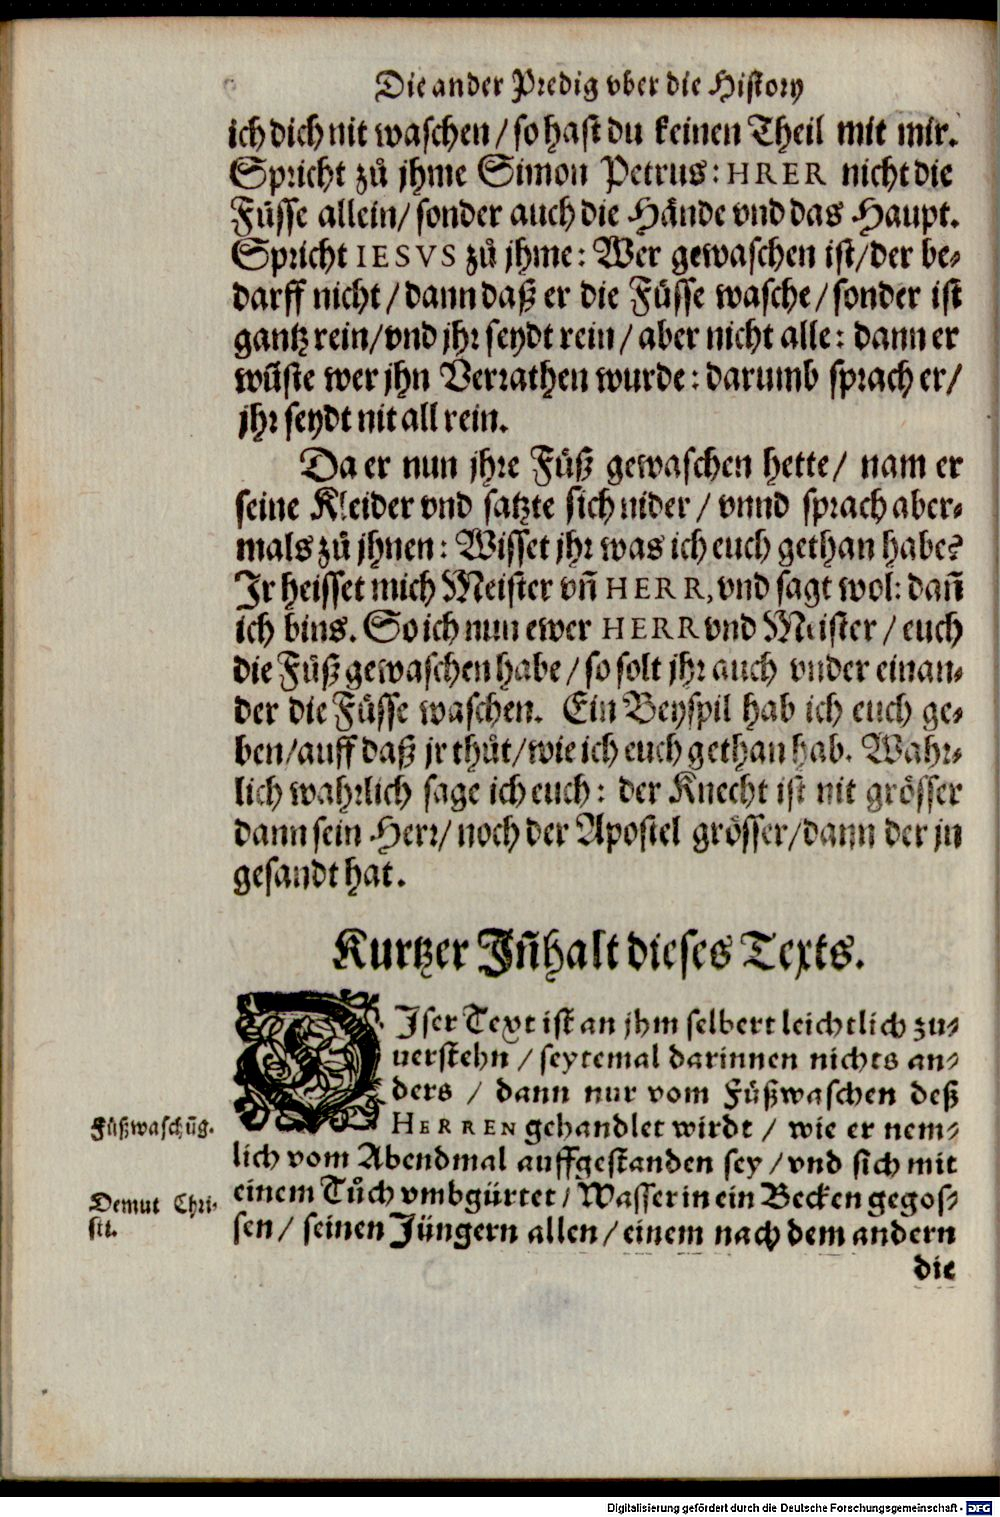 Die ander Predig vber die History
ich dich nit waschen / so hast du keinen Theil mit mir.
Spricht zů jhme Simon Petrus: HRER nicht die
Füsse allein / sonder auch die Hände vnd das Haupt.
Spricht IESVS zů jhme: Wer gewaschen ist / der be-
darff nicht / dann daß er die Füsse wasche / sonder ist
gantz rein / vnd jhr seydt rein / aber nicht alle: dann er
wůste wer jhn Verrathen wurde: darumb sprach er /
jhr seydt nit all rein.
Da er nun jhre Füß gewaschen hette / nam er
seine Kleider vnd satzte sich nider / vnnd sprach aber-
mals zů jhnen: Wisset jhr was ich euch gethan habe?
Ir heisset mich Meister vñ HERR, vnd sagt wol: dañ
ich bins. So ich nun ewer HERR vnd Meister / euch
die Füß gewaschen habe / so solt jhr auch vnder einan-
der die Füsse waschen. Ein Beyspil hab ich euch ge-
ben / auff daß jr thůt / wie ich euch gethan hab. Wahr-
lich wahrlich sage ich euch: der Knecht ist nit grösser
dann sein Herr / noch der Apostel grösser / dann der jn
gesandt hat.
Kurtzer Jñhalt dieses Texts.
DJser Text ist an jhm selbert leichtlich zu-
uerstehn / seytemal darinnen nichts an-
ders / dann nur vom Füßwaschen deß
HERREN gehandlet wirdt / wie er nem-
Füßwaschũg.
lich vom Abendmal auffgestanden sey / vnd sich mit
einem Tůch vmbgürtet / Wasser in ein Becken gegos-
Demut Chri-
sti.
sen / seinen Jüngern allen / einem nach dem andern
die
Digitalisierung gefördert durch die Deutsche Forschungsgemeinschaft - DFG